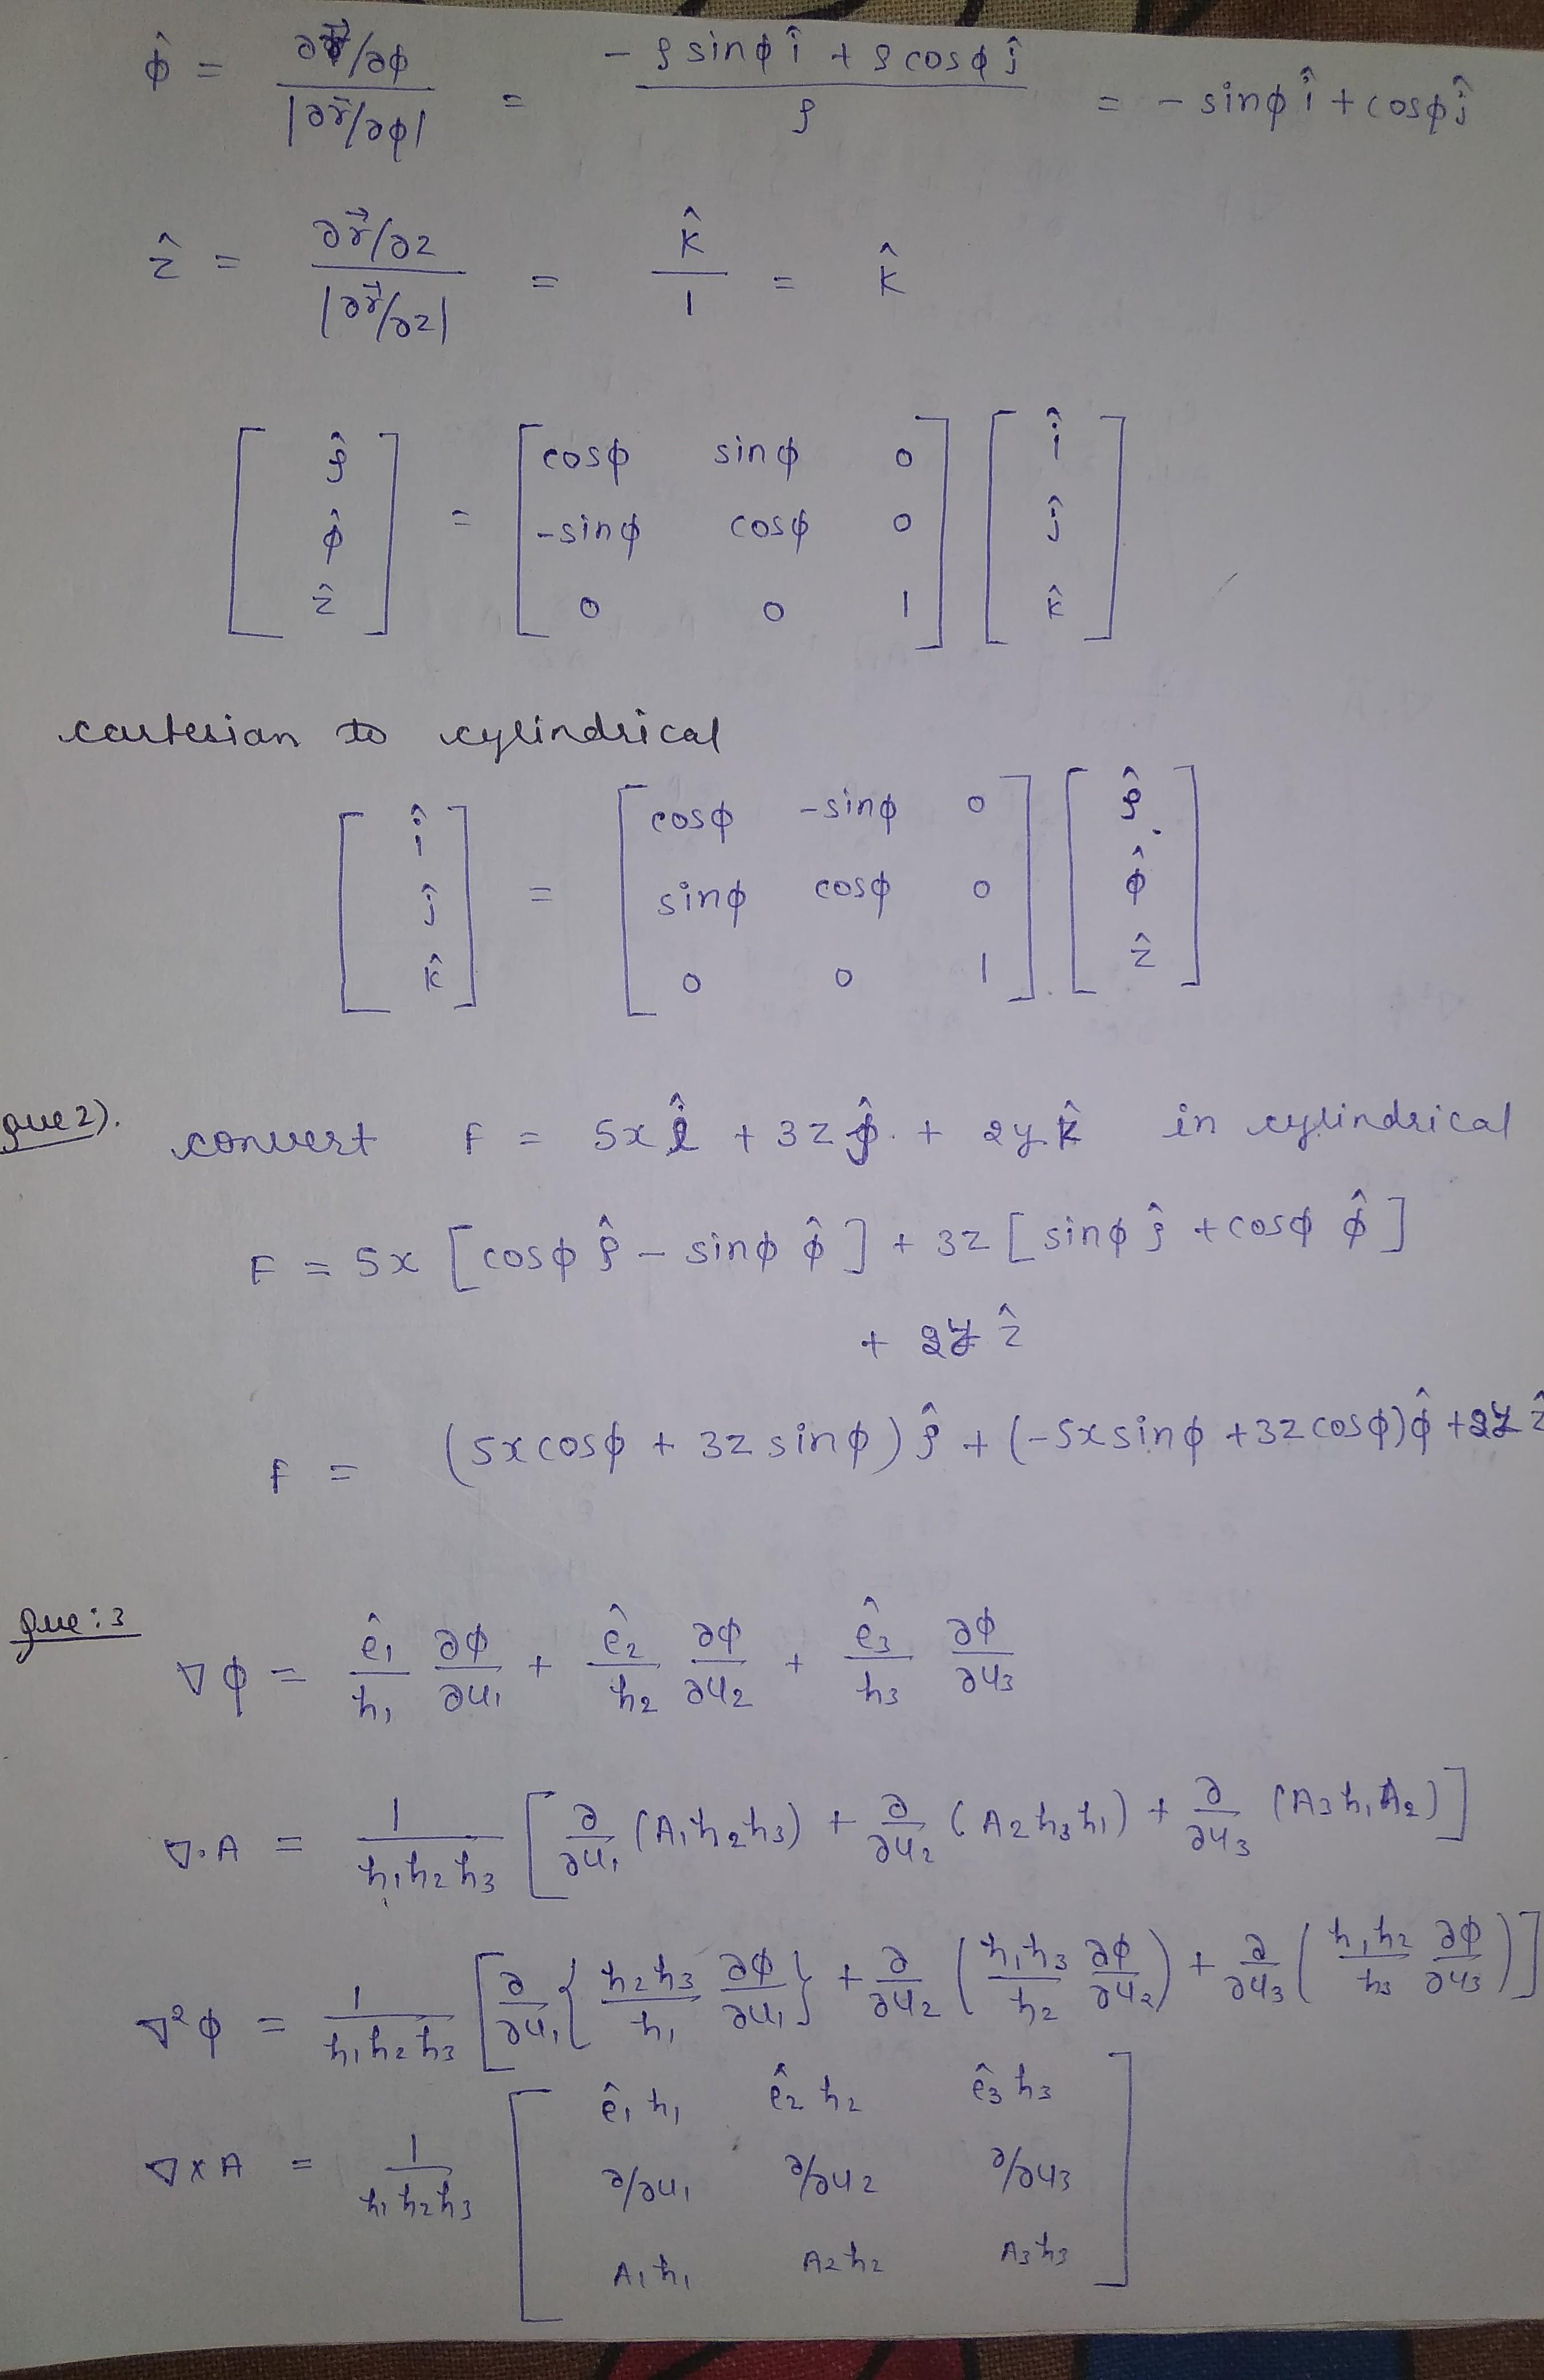 ϕ̂ = ∂r⃗/∂ϕ / |∂r⃗/∂ϕ| = - ρ sinϕ î + ρ cosϕ ĵ / ρ = - sinϕ î + cosϕ ĵ
ẑ = ∂r⃗/∂z / |∂r⃗/∂z| = k̂ / 1 = k̂
[ ρ̂ ϕ̂ ẑ ] = [ cosϕ sinϕ 0 -sinϕ cosϕ 0 0 0 1 ] [ î ĵ k̂ ]
cartesian to cylindrical
[ î ĵ k̂ ] = [ cosϕ -sinϕ 0 sinϕ cosϕ 0 0 0 1 ] [ ρ̂ ϕ̂ ẑ ]
que 2). convert F = 5x î + 3z ĵ + 2y k̂ in cylindrical
F = 5x [ cosϕ ρ̂ - sinϕ ϕ̂ ] + 3z [ sinϕ ρ̂ + cosϕ ϕ̂ ]
+ 2y ẑ
F = (5x cosϕ + 3z sinϕ) ρ̂ + (-5x sinϕ + 3z cosϕ) ϕ̂ + 2y ẑ
que: 3 ∇ϕ = ê₁/h₁ ∂ϕ/∂u₁ + ê₂/h₂ ∂ϕ/∂u₂ + ê₃/h₃ ∂ϕ/∂u₃
∇.A = 1/h₁h₂h₃ [ ∂/∂u₁ (A₁h₂h₃) + ∂/∂u₂ (A₂h₃h₁) + ∂/∂u₃ (A₃h₁h₂) ]
∇²ϕ = 1/h₁h₂h₃ [ ∂/∂u₁ { h₂h₃/h₁ ∂ϕ/∂u₁ } + ∂/∂u₂ ( h₁h₃/h₂ ∂ϕ/∂u₂ ) + ∂/∂u₃ ( h₁h₂/h₃ ∂ϕ/∂u₃ ) ]
∇×A = 1/h₁h₂h₃ [ ê₁h₁ ê₂h₂ ê₃h₃ ∂/∂u₁ ∂/∂u₂ ∂/∂u₃ A₁h₁ A₂h₂ A₃h₃ ]